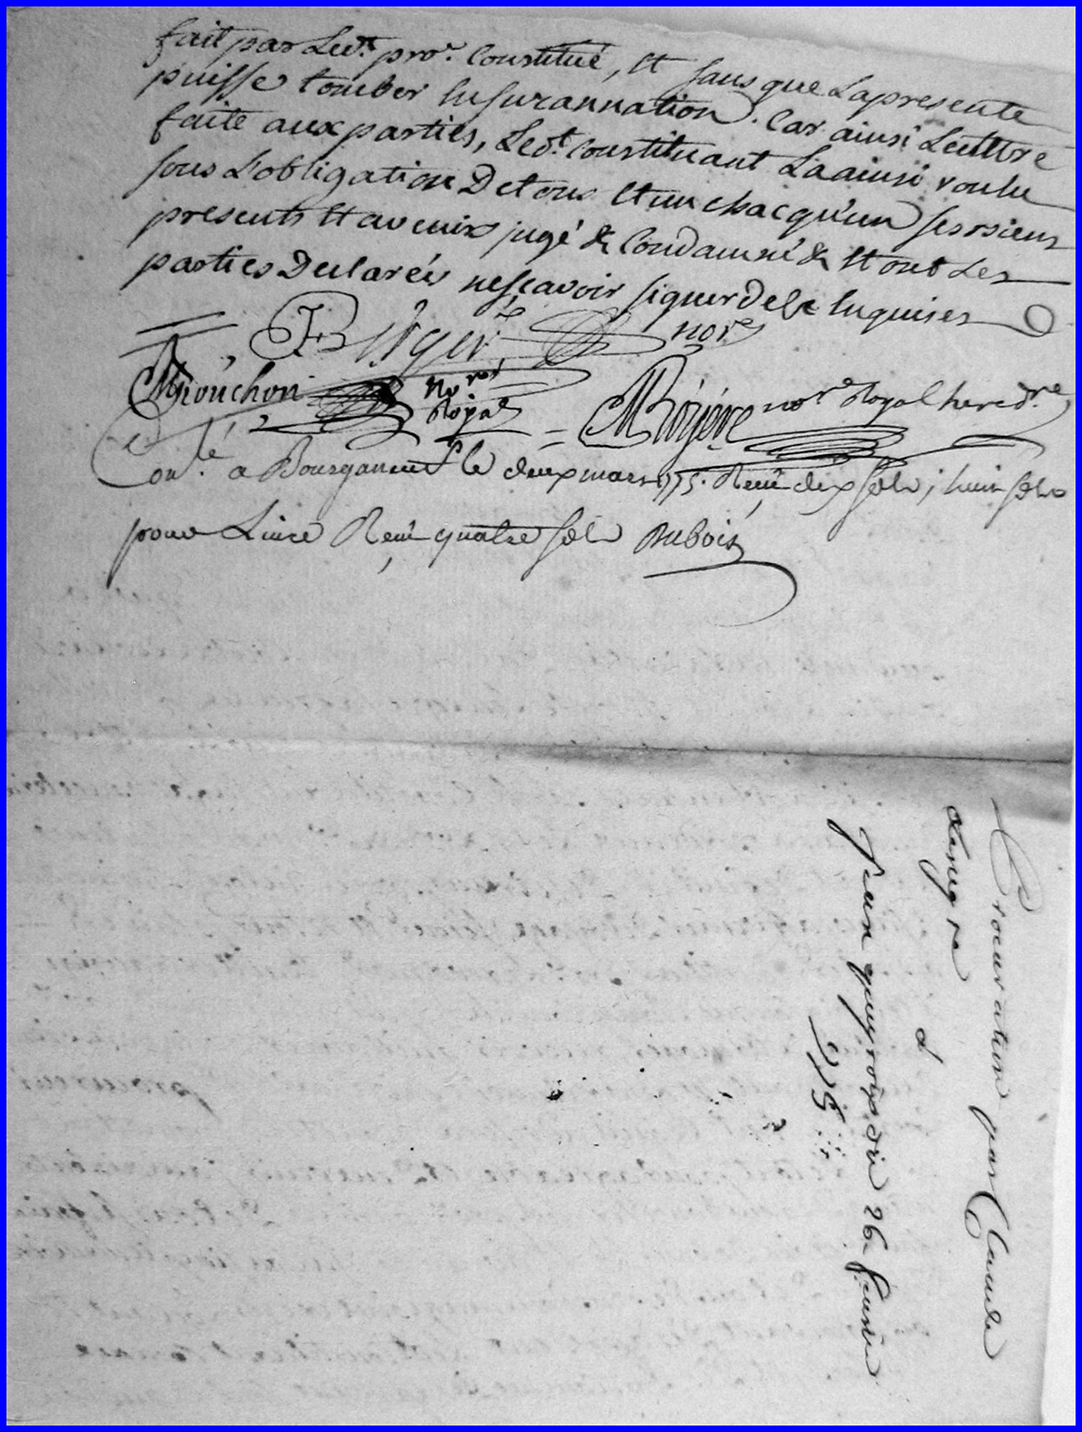 fait par Led.t pro.r Constitué, Et sans que Lapresente
puisse tomber Ensurannation. Car ainsi Lenttre
faite aux parties, Led.t Constituant La ainsi voulu
sous L'obligation De tous Et un chacqu'un ses biens
presents Et avenir jugé & Condamné & Et ont Les
parties Declarées nesçavoir signer De Ce Enquises
nor.e
Mrouchon No.re Royal
nor.e Royal hered.re
Con.lé a Bourganeuf le deux mars 175. Receu dix sols ; huit sols
pour Receu quatre sols Dubois
Procuration par Claude
a
Jean queyroix du 26. feurier